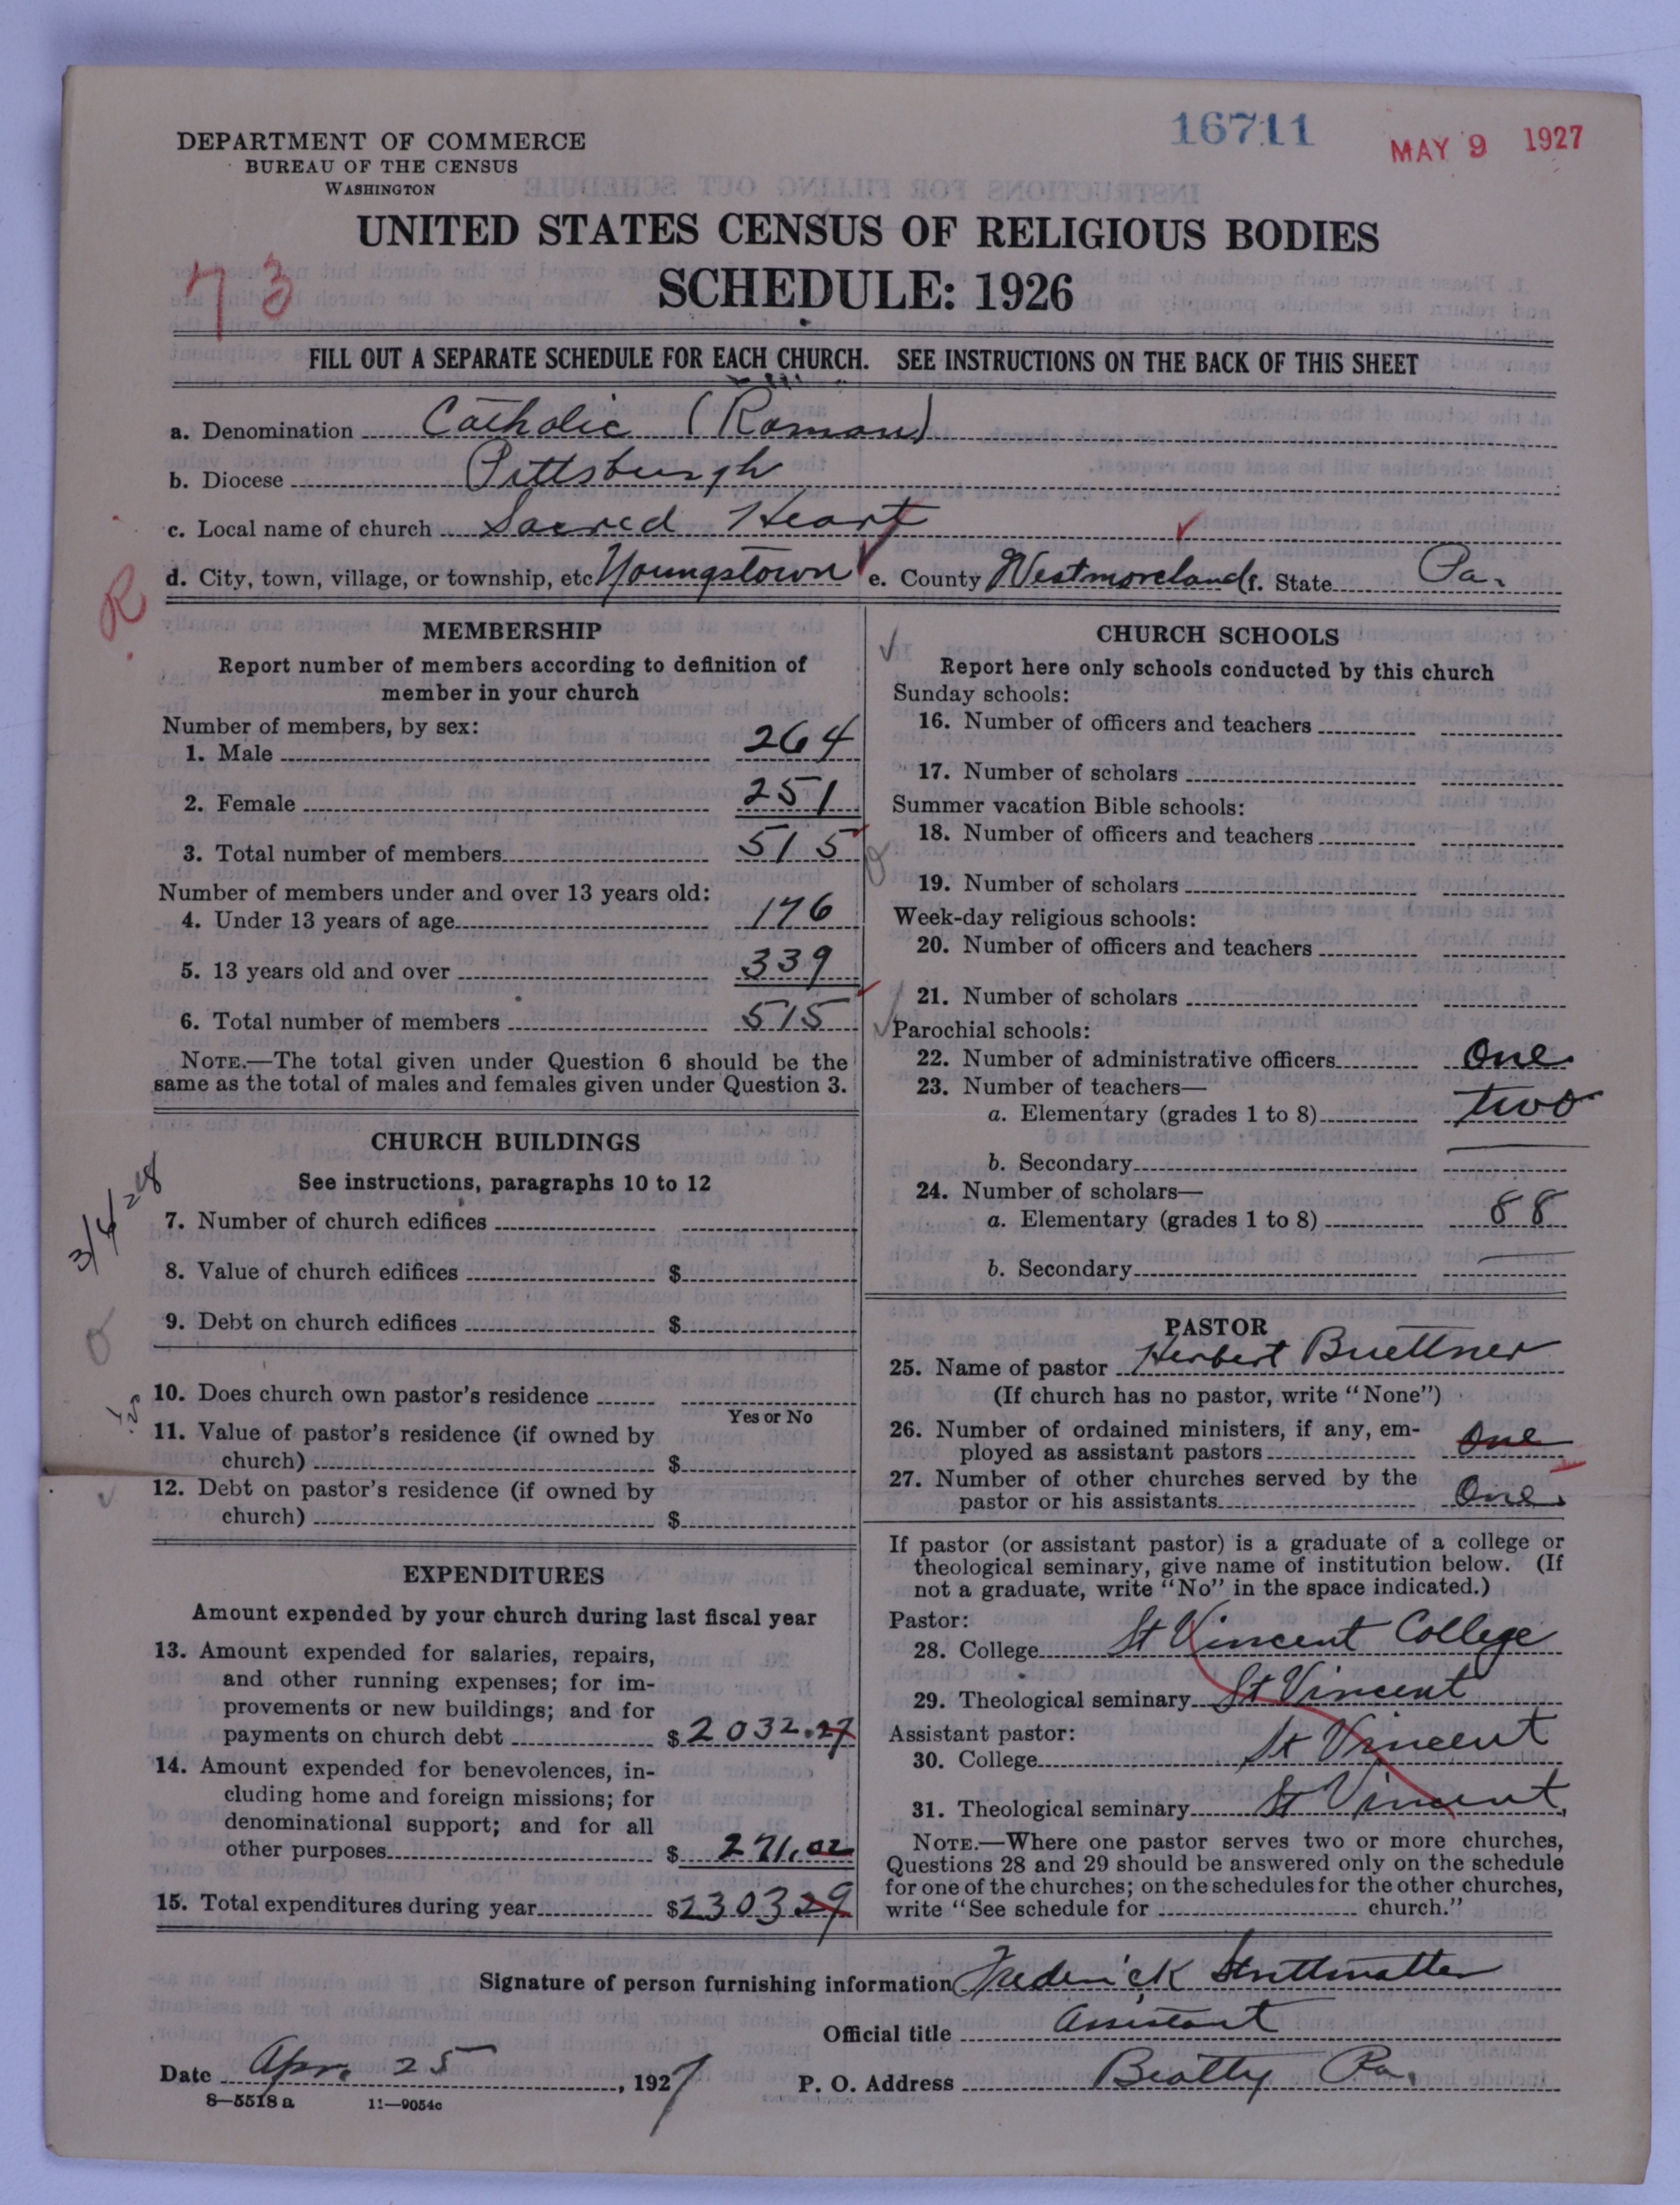 16711
MAY 9 1927
DEPARTMENT OF COMMERCE
BUREAU OF THE CENSUS
WASHINGTON
UNITED STATES CENSUS OF RELIGIOUS BODIES
73
SCHEDULE: 1926
FILL OUT A SEPARATE SCHEDULE FOR EACH CHURCH. SEE INSTRUCTIONS ON THE BACK OF THIS SHEET
a. Denomination Catholic (Roman)
b. Diocese Pittsburgh
c. Local name of church Sacred Heart
d. City, town, village, or township, etc Youngstown e. County Westmoreland f. State Pa.
R
MEMBERSHIP
Report number of members according to definition of
member in your church
Number of members, by sex:
1. Male 264
2. Female 251
3. Total number of members 515
Number of members under and over 13 years old:
4. Under 13 years of age 176
5. 13 years old and over 339
6. Total number of members 515
NOTE.—The total given under Question 6 should be the
same as the total of males and females given under Question 3.
CHURCH BUILDINGS
See instructions, paragraphs 10 to 12
7. Number of church edifices
8. Value of church edifices $
9. Debt on church edifices $
10. Does church own pastor's residence
Yes or No
11. Value of pastor's residence (if owned by
church) $
12. Debt on pastor's residence (if owned by
church) $
EXPENDITURES
Amount expended by your church during last fiscal year
13. Amount expended for salaries, repairs,
and other running expenses; for im-
provements or new buildings; and for
payments on church debt $ 2032.27
14. Amount expended for benevolences, in-
cluding home and foreign missions; for
denominational support; and for all
other purposes $ 271.02
15. Total expenditures during year $2303 29
CHURCH SCHOOLS
Report here only schools conducted by this church
Sunday schools:
16. Number of officers and teachers
17. Number of scholars
Summer vacation Bible schools:
18. Number of officers and teachers
19. Number of scholars
Week-day religious schools:
20. Number of officers and teachers
21. Number of scholars
Parochial schools:
22. Number of administrative officers One
23. Number of teachers—
a. Elementary (grades 1 to 8) two
b. Secondary
24. Number of scholars—
a. Elementary (grades 1 to 8) 88
b. Secondary
PASTOR
25. Name of pastor Herbert Buettner
(If church has no pastor, write "None")
26. Number of ordained ministers, if any, em-
ployed as assistant pastors One
27. Number of other churches served by the
pastor or his assistants One
If pastor (or assistant pastor) is a graduate of a college or
theological seminary, give name of institution below. (If
not a graduate, write "No" in the space indicated.)
Pastor:
28. College St Vincent College
29. Theological seminary St Vincent
Assistant pastor:
30. College St Vincent
31. Theological seminary St Vincent
NOTE.—Where one pastor serves two or more churches,
Questions 28 and 29 should be answered only on the schedule
for one of the churches; on the schedules for the other churches,
write "See schedule for church."
Signature of person furnishing information Frederick Strittmatter
Official title Assistant
Date Apr. 25, 1927 P. O. Address Beatty Pa.
8—5518 a 11—9054c